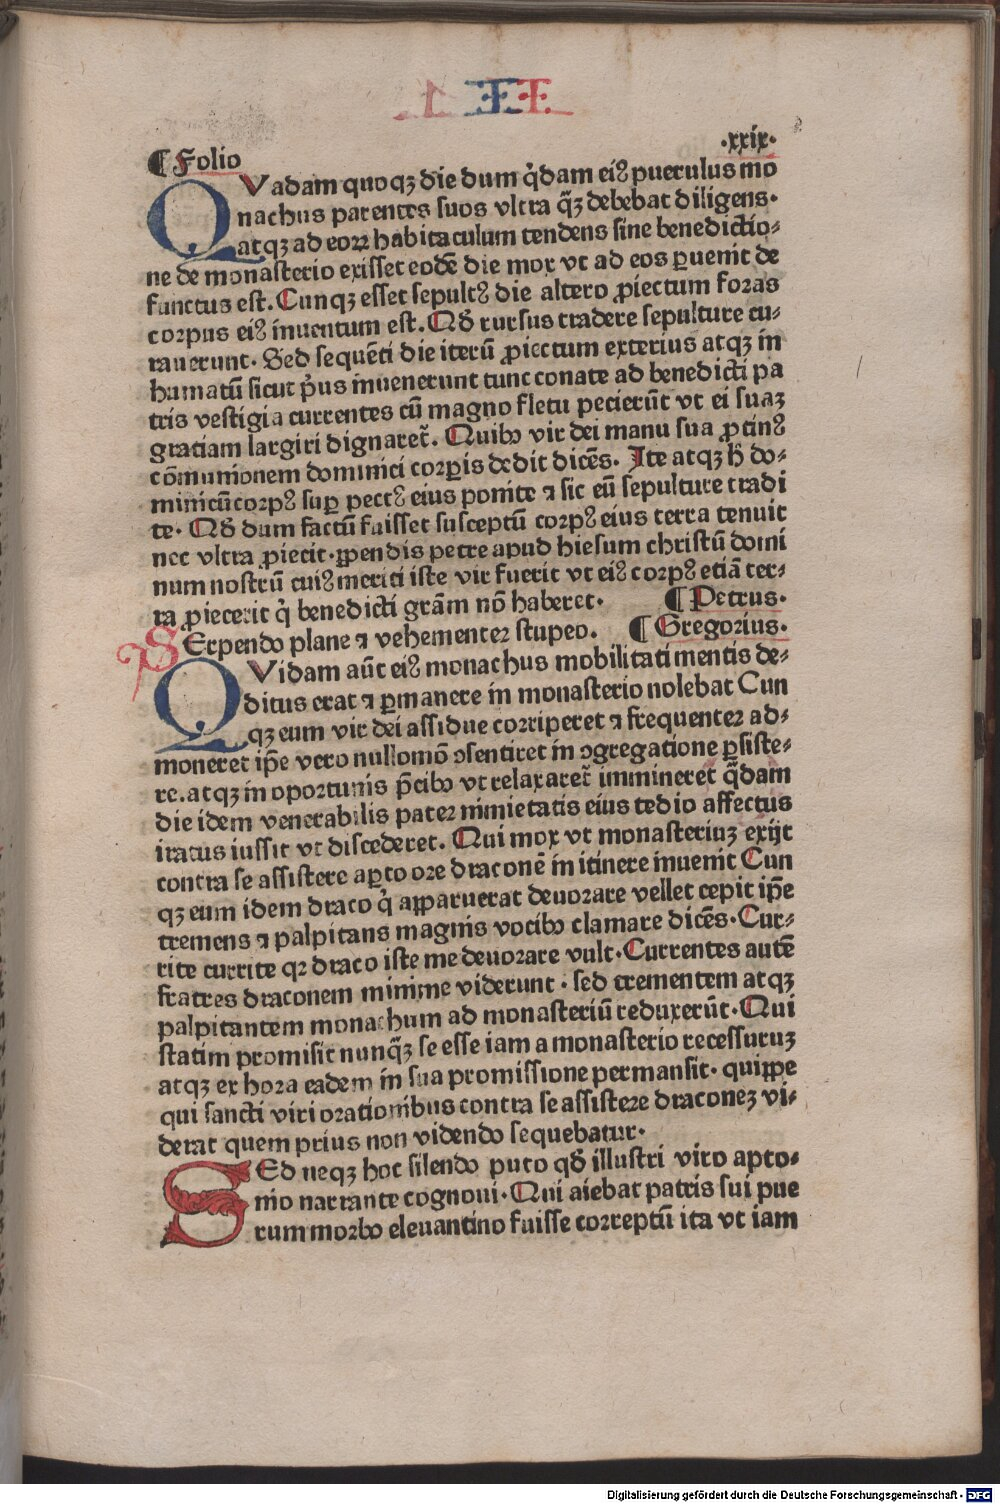 ·xxix·
¶ Folio
QVadam quoqꝫ die dum q̇dam eiꝰ puerulus mo
nachus parentes suos vltra q̄ꝫ debebat diligens·
atqꝫ ad eoꝝ habitaculum tendens sine benedictio⸗
ne de monasterio exisset eodē die mox vt ad eos ꝑuenit de
functus est. Cunqꝫ esset sepultꝰ die altero ꝓiectum foras
corpus eiꝰ inuentum est. Qđ rursus tradere sepulture cu⸗
rauerunt. Sed sequēti die iterū ꝓiectum exterius atqꝫ in
humatū sicut p̄us inuenerunt tunc conate ad benedicti pa
tris vestigia currentes cū magno fletu pecierūt vt ei suaꝫ
gratiam largiri dignareť. Quibꝰ vir dei manu sua ꝓtinꝰ
cōmunionem dominici corꝑis dedit dicēs. Ite atqꝫ h̄ do⸗
minicū corpꝰ suꝑ pectꝰ eius ponite ⁊ sic eū sepulture tradi
te. Qđ dum factū fuisset susceptū corpꝰ eius terra tenuit
nec vltra ꝓiecit. ꝑpendis petre apud hiesum christū domi
num nostrū cuiꝰ meriti iste vir fuerit vt eiꝰ corpꝰ etiā ter⸗
ra ꝓiecerit q̇ benedicti grām nō haberet· ¶ Petrus·
SErpendo plane ⁊ vehementer stupeo. ¶ Gregorius·
QVidam aūt eiꝰ monachus mobilitati mentis de⸗
ditus erat ⁊ ꝑmanere in monasterio nolebat Cun
qꝫ eum vir dei assidue corriperet ⁊ frequenter ad⸗
moneret ip̄e vero nullomō ꝯsentiret in ꝯgregatione ꝑsiste⸗
re. atqꝫ in oportunis p̄cibꝰ vt relaxareť immineret q̄dam
die idem venerabilis pater nimietatis eius tedio affectus
iratus iussit vt discederet. Qui mox vt monasteriuꝫ exijt
contra se assistere aꝑto ore draconē in itinere inuenit Cun
qꝫ eum idem draco q̇ apparuerat deuorare vellet cepit ip̄e
tremens ⁊ palpitans magnis vocibꝰ clamare dicēs. Cur⸗
rite currite qꝛ draco iste me deuorare vult. Currentes autē
fratres draconem minime viderunt · sed trementem atqꝫ
palpitantem monachum ad monasteriū reduxerūt. Qui
statim promisit nunq̄ꝫ se esse iam a monasterio recessuruꝫ
atqꝫ ex hora eadem in sua promissione permansit. quippe
qui sancti viri orationibus contra se assistere draconeꝫ vi⸗
derat quem prius non videndo sequebatur·
SEd neqꝫ hoc silendo puto qđ illustri viro apto⸗
nio narrante cognoui. Qui aiebat patris sui pue
rum morbo eleuantino fuisse correptū ita vt iam
Digitalisierung gefördert durch die Deutsche Forschungsgemeinschaft · DFG